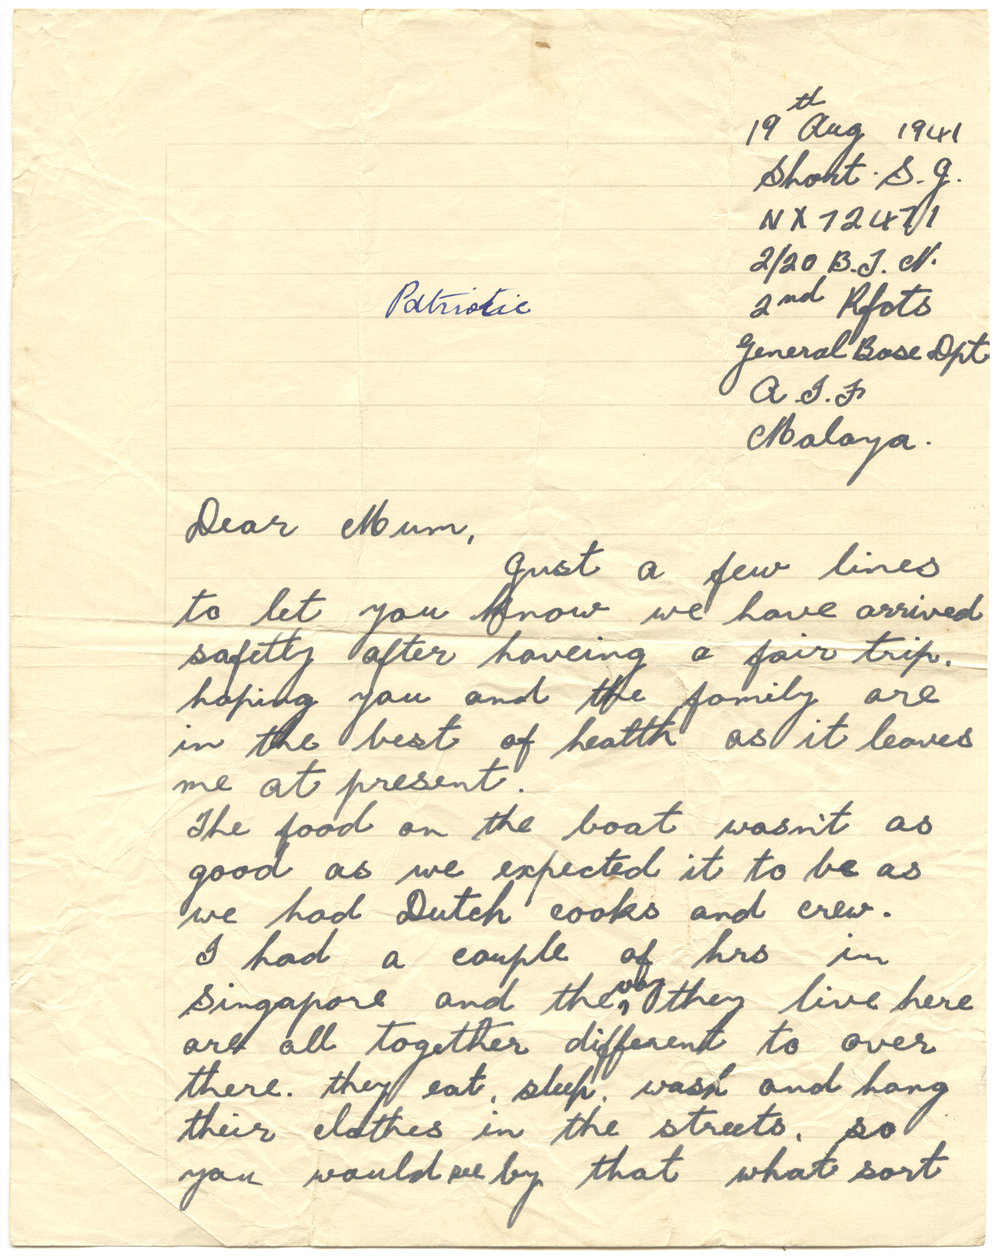 19th Aug 1941
Short. S. G.
NX72471
2/20 B.T.N.
2nd Rfcts
General Base Dpt
A.I.F
Malaya.
Patriotic
Dear Mum,
Just a few lines
to let you know we have arrived
safetly after haveing a fair trip.
hoping you and the family are
in the best of health as it leaves
me at present.
The food on the boat wasn't as
good as we expected it to be as
we had Dutch cooks and crew.
I had a couple of hrs in
Singapore and the way they live here
are all together different to over
there. they eat, sleep, wash and hang
their clothes in the streets, so
you would see by that what sort